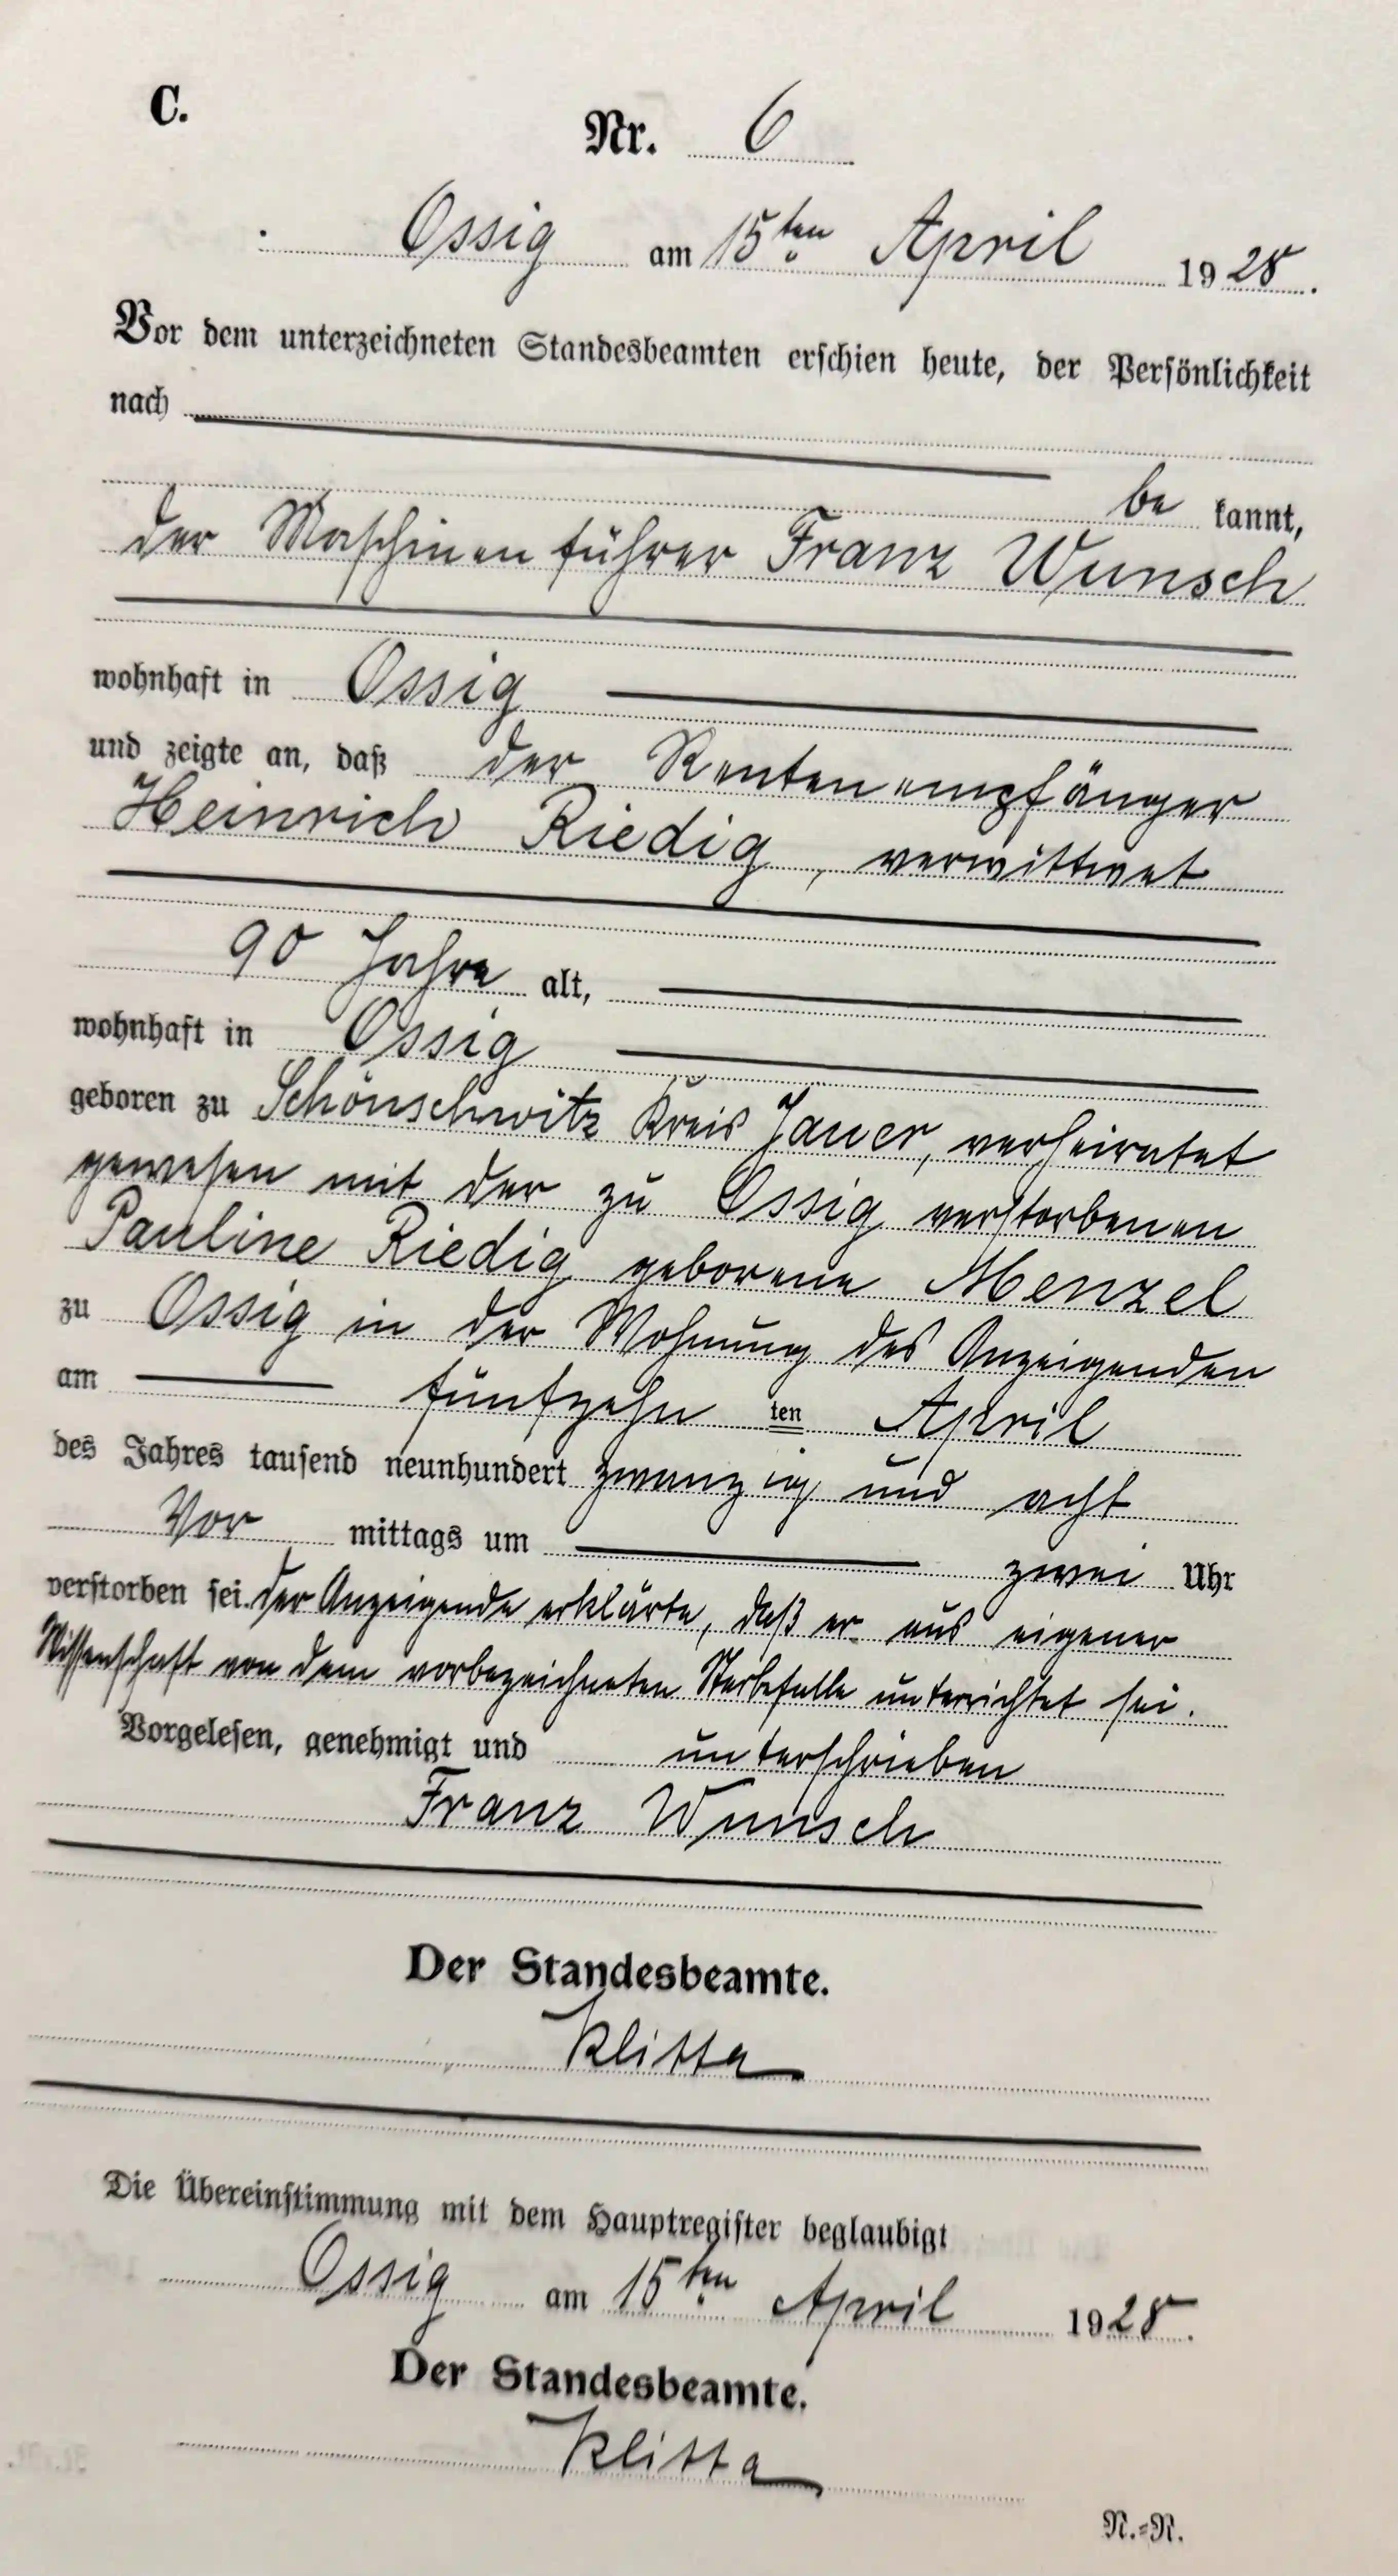 C.
Nr. 6
Ossig am 15ten April 1928.
Vor dem unterzeichneten Standesbeamten erschien heute, der Persönlichkeit
nach
be kannt,
der Maschinenführer Franz Wunsch
wohnhaft in Ossig
und zeigte an, daß der Rentenempfänger
Heinrich Riedig, verwittwet
90 Jahre alt,
wohnhaft in Ossig
geboren zu Schönschwitz Kreis Jauer, verheiratet
gewesen mit der zu Ossig verstorbenen
Pauline Riedig geborene Menzel
zu Ossig in der Wohnung des Anzeigenden
am fünfzehn ten April
des Jahres tausend neunhundert zwanzig und acht
Vor mittags um zwei Uhr
verstorben sei. Der Anzeigende erklärte, daß er aus eigener
Wissenschaft von dem vorbezeichneten Sterbefalle unterrichtet sei.
Vorgelesen, genehmigt und unterschrieben
Franz Wunsch
Der Standesbeamte.
Klitta
Die Übereinstimmung mit dem Hauptregister beglaubigt
Ossig am 15ten April 1928.
Der Standesbeamte.
Klitta
N.=N.